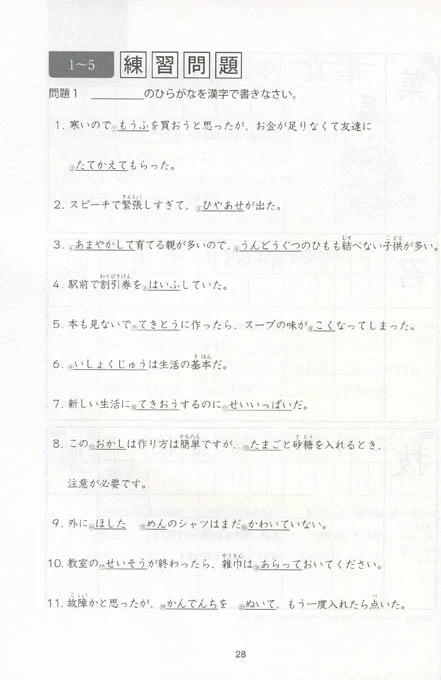 1～5 練習問題
問題1 ＿＿＿＿のひらがなを漢字で書きなさい。
1. 寒いので①もうふを買おうと思ったが、お金が足りなくて友達に
②たてかえてもらった。
2. スピーチで緊張しすぎて、③ひやあせが出た。
3. ④あまやかして育てる親が多いので、⑤うんどうぐつのひもも結べない子供が多い。
4. 駅前で割引券を⑥はいふしていた。
5. 本も見ないで⑦てきとうに作ったら、スープの味が⑧こくなってしまった。
6. ⑨いしょくじゅうは生活の基本だ。
7. 新しい生活に⑩てきおうするのに⑪せいいっぱいだ。
8. この⑫おかしは作り方は簡単ですが、⑬たまごと砂糖を入れるとき、
注意が必要です。
9. 外に⑭ほした ⑮めんのシャツはまだ⑯かわいていない。
10. 教室の⑰せいそうが終わったら、雑巾は⑱あらっておいてください。
11. 故障かと思ったが、⑲かんでんちを ⑳ぬいて、もう一度入れたら点いた。
28